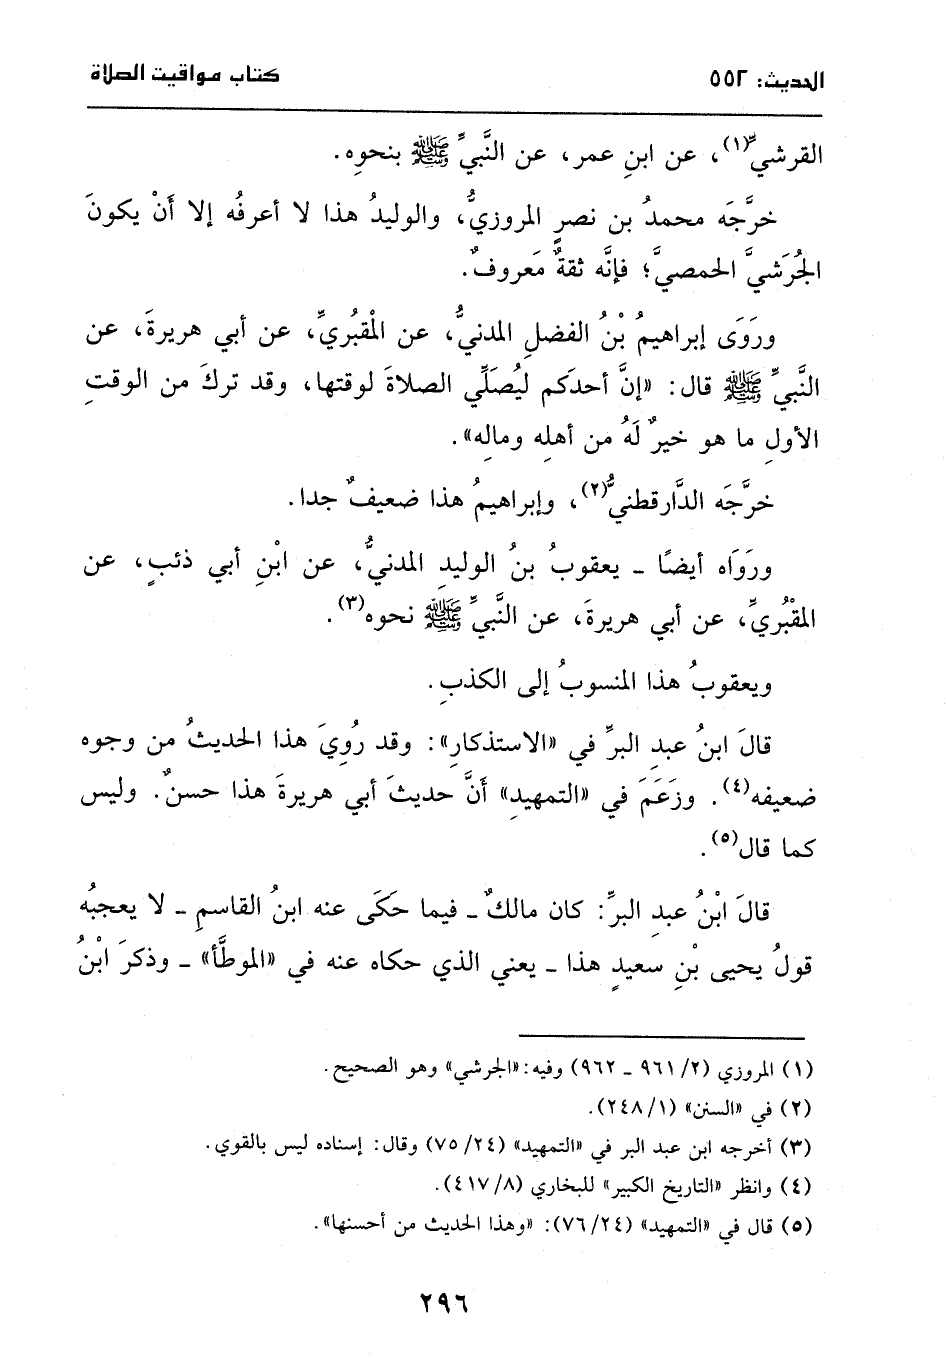 الحديث: ٥٥٢
كتاب مواقيت الصلاة
القرشيِّ(١)، عن ابنِ عمر، عن النَّبيِّ ﷺ بنحوِه.
خرَّجَه محمدُ بن نصرٍ المروزيُّ، والوليدُ هذا لا أعرفُه إلا أَنْ يكونَ
الجُرَشيَّ الحمصيَّ؛ فإنَّه ثقةٌ مَعروفٌ.
ورَوَى إبراهيمُ بْنُ الفضلِ المدنيُّ، عن الْمقبُريِّ، عن أبي هريرةَ، عن
النَّبيِّ ﷺ قال: «إنَّ أحدَكم ليُصَلِّي الصلاةَ لوقتها، وقد تركَ من الوقتِ
الأولِ ما هو خيرٌ لَهُ من أهلِه ومالِه».
خرَّجَه الدَّارقطنيُّ(٢)، وإبراهيمُ هذا ضعيفٌ جدا.
ورَوَاه أيضًا ـ يعقوبُ بنُ الوليدِ المدنيُّ، عن ابْنِ أبي ذئبٍ، عن
المقْبُريِّ، عن أبي هريرةَ، عن النَّبيِّ ﷺ نحوه(٣).
ويعقوبُ هذا المنسوبُ إلى الكذبِ.
قالَ ابنُ عبدِ البرِّ في «الاستذكارِ»: وقد رُوِيَ هذا الحديثُ من وجوه
ضعيفه(٤). وزَعَمَ في «التمهيدِ» أَنَّ حديثَ أبي هريرةَ هذا حسنٌ. وليس
كما قال(٥).
قالَ ابْنُ عبدِ البرِّ: كان مالكٌ ـ فيما حكَى عنه ابنُ القاسمِ ـ لا يعجبُه
قولُ يحيى بْنِ سعيدٍ هذا ـ يعني الذي حكاه عنه في «الموطَّأ» ـ وذكرَ ابْنُ
(١) المروزي (٢/ ٩٦١ ـ ٩٦٢) وفيه: «الجرشي» وهو الصحيح.
(٢) في «السنن» (١/ ٢٤٨).
(٣) أخرجه ابن عبد البر في «التمهيد» (٢٤/ ٧٥) وقال: إسناده ليس بالقوي.
(٤) وانظر «التاريخ الكبير» للبخاري (٨/ ٤١٧).
(٥) قال في «التمهيد» (٢٤/ ٧٦): «وهذا الحديث من أحسنها».
٢٩٦